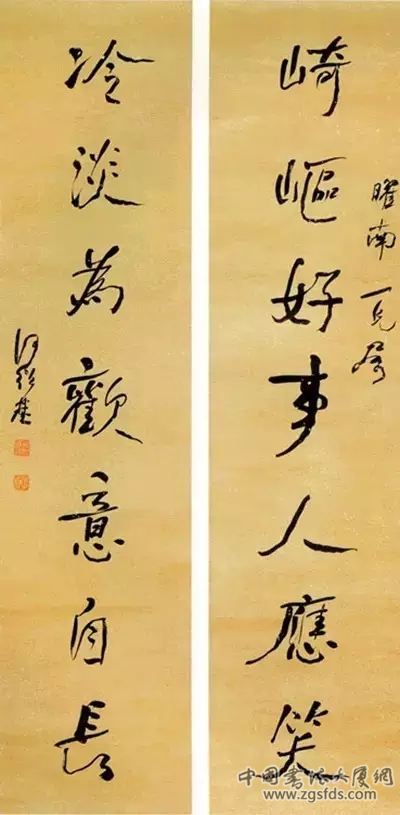 曜南一兄屬
崎嶇好事人應笑
冷淡為歡意自長
何紹基
中国书法大厦網
www.zgsfds.com